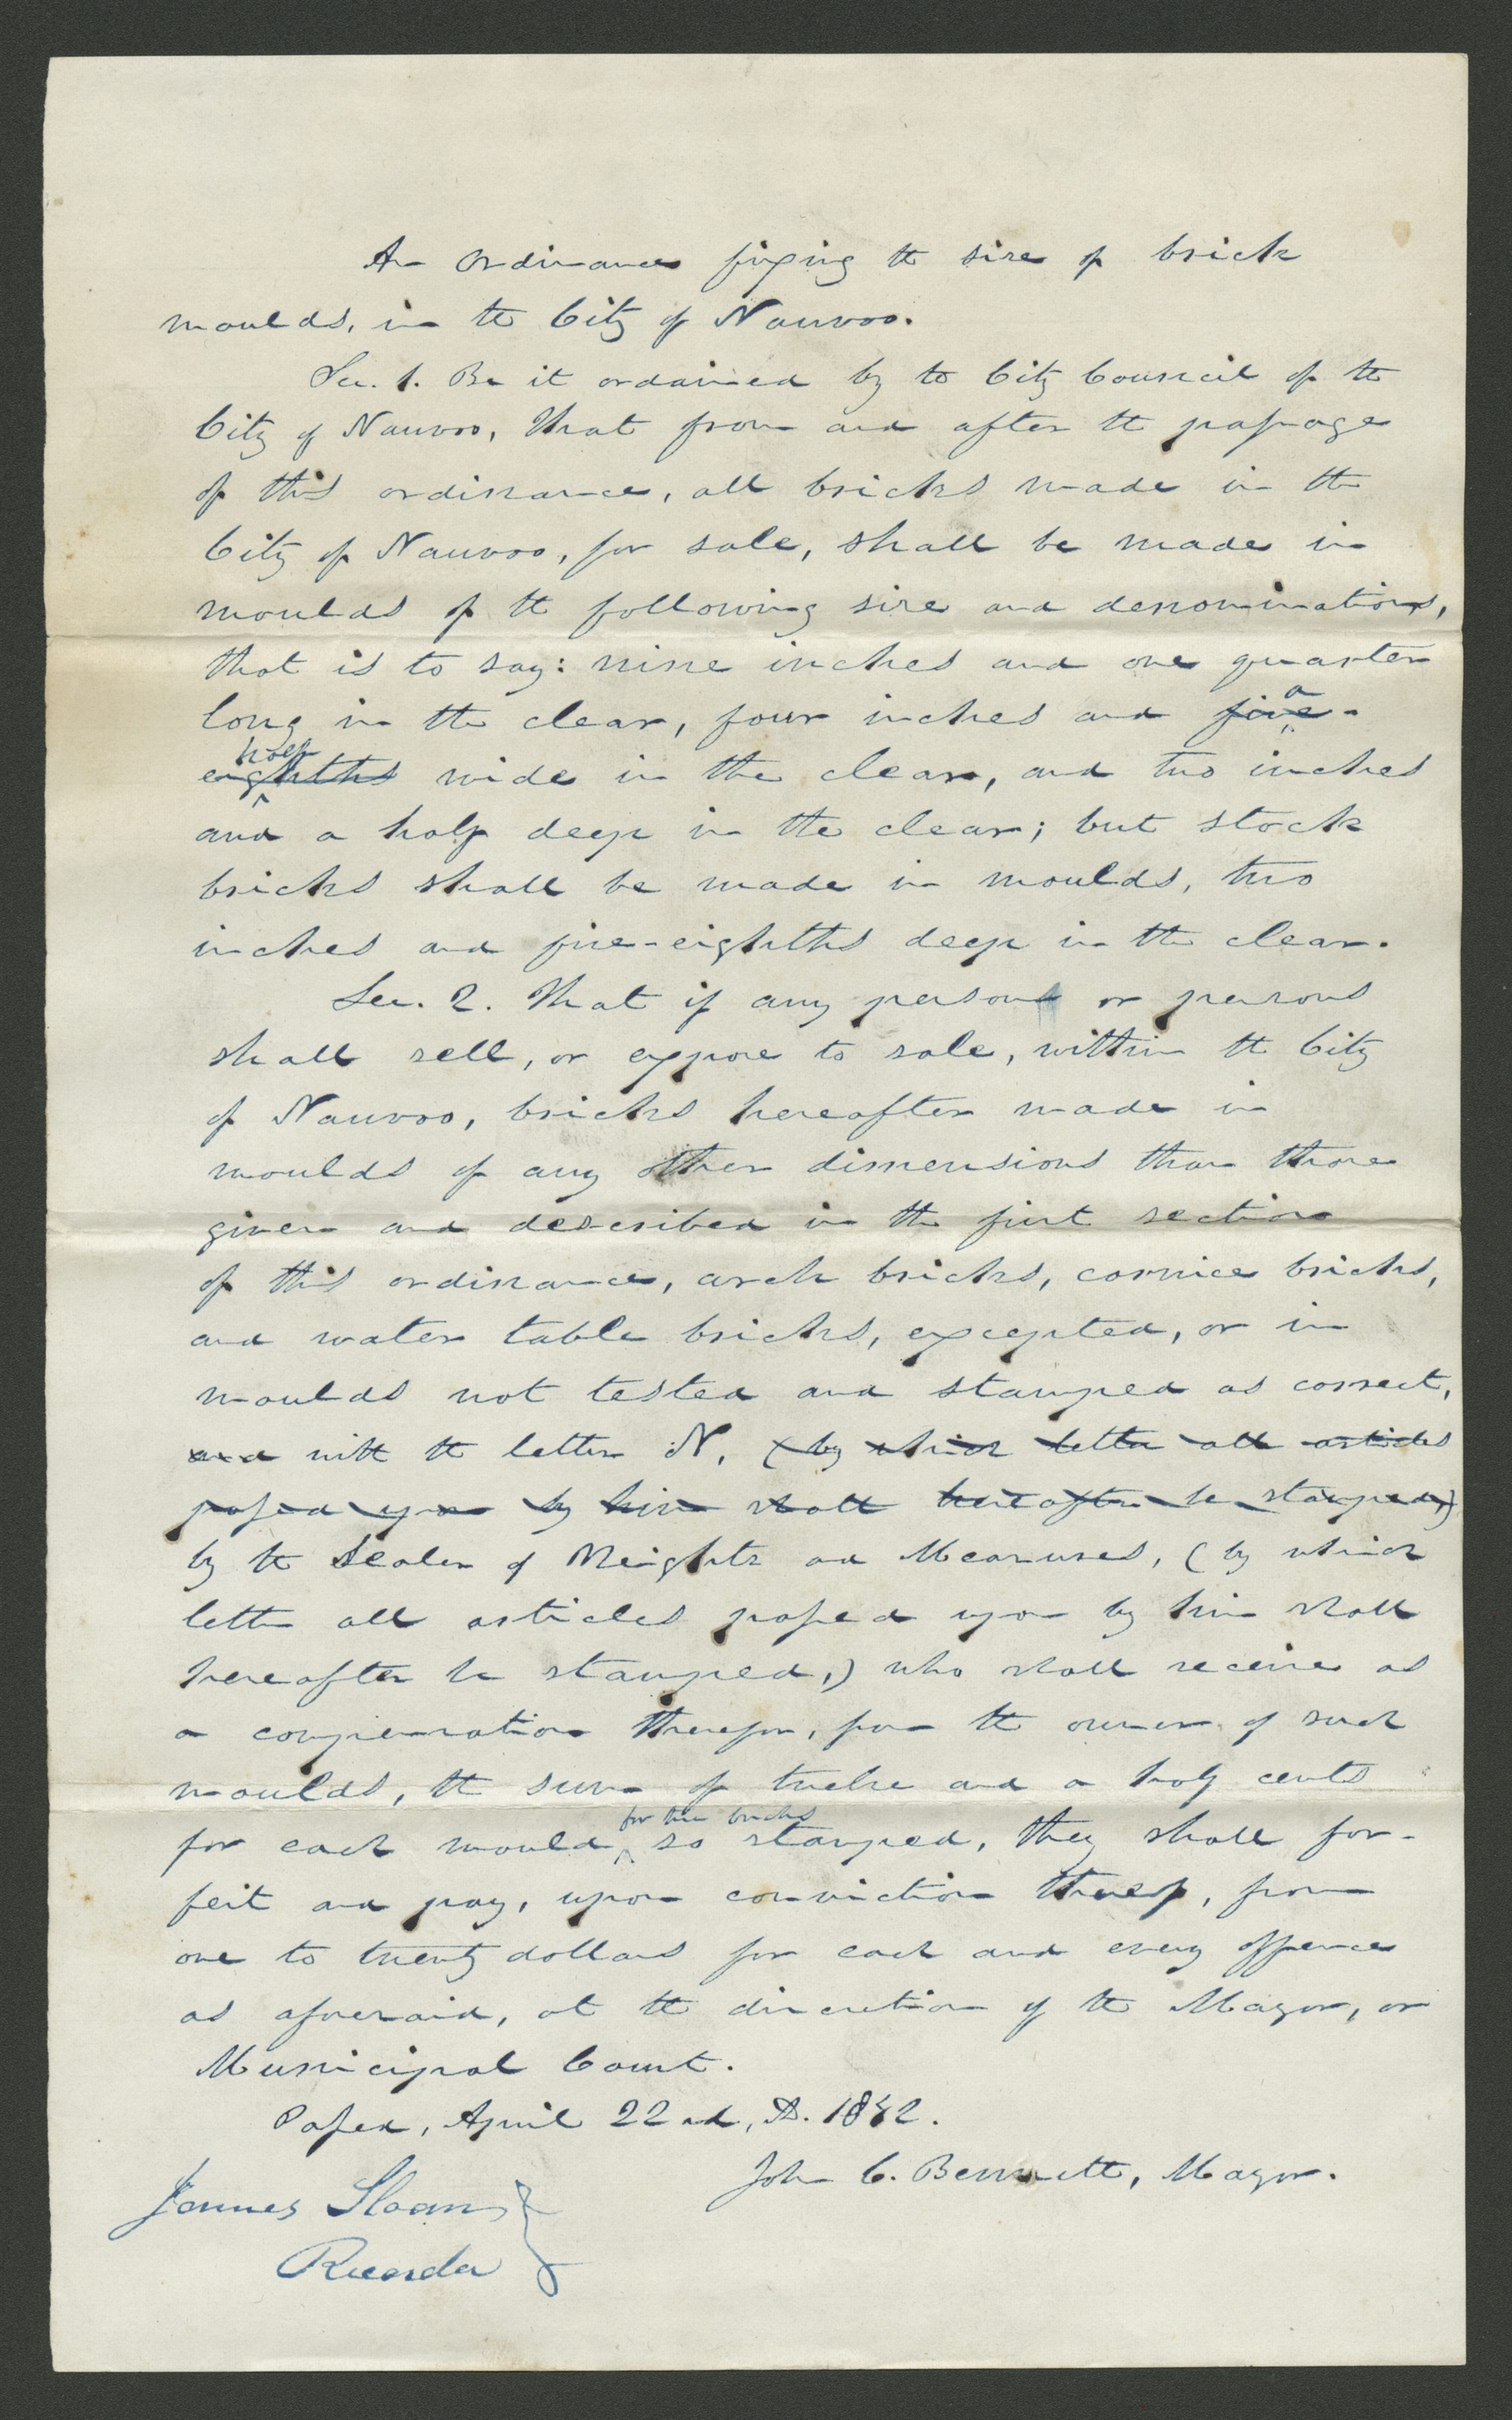 An Ordinance fixing the size of brick
moulds, in the City of Nauvoo.
Sec. 1. Be it ordained by the City Council of the
City of Nauvoo, That from and after the passage
of this ordinance, all bricks made in the
City of Nauvoo, for sale, shall be made in
moulds of the following size and denominations,
that is to say: nine inches and one quarter
long in the clear, four inches and five- a
eighths half wide in the clear, and two inches
and a half deep in the clear; but stock
bricks shall be made in moulds, two
inches and five-eighths deep in the clear.
Sec. 2. That if any person or persons
shall sell, or expose to sale, within the City
of Nauvoo, bricks hereafter made in
moulds of any other dimensions than those
given and described in the first section
of this ordinance, arch bricks, cornice bricks,
and water table bricks, excepted, or in
moulds not tested and stamped as correct,
and with the letter N, (by which letter all articles
passed upon by him shall hereafter be stamped,)
by the Sealer of Weights and Measures, (by which
letter all articles passed upon by him shall
hereafter be stamped,) who shall receive as
a compensation therefor, from the owner of such
moulds, the sum of twelve and a half cents
for each mould for the bricks so stamped, they shall for-
feit and pay, upon conviction thereof, from
one to twenty dollars for each and every offence
as aforesaid, at the discretion of the Mayor, or
Municipal Court.
Passed, April 22nd, A. 1842.
John C. Bennett, Mayor.
James Sloan
Recorder